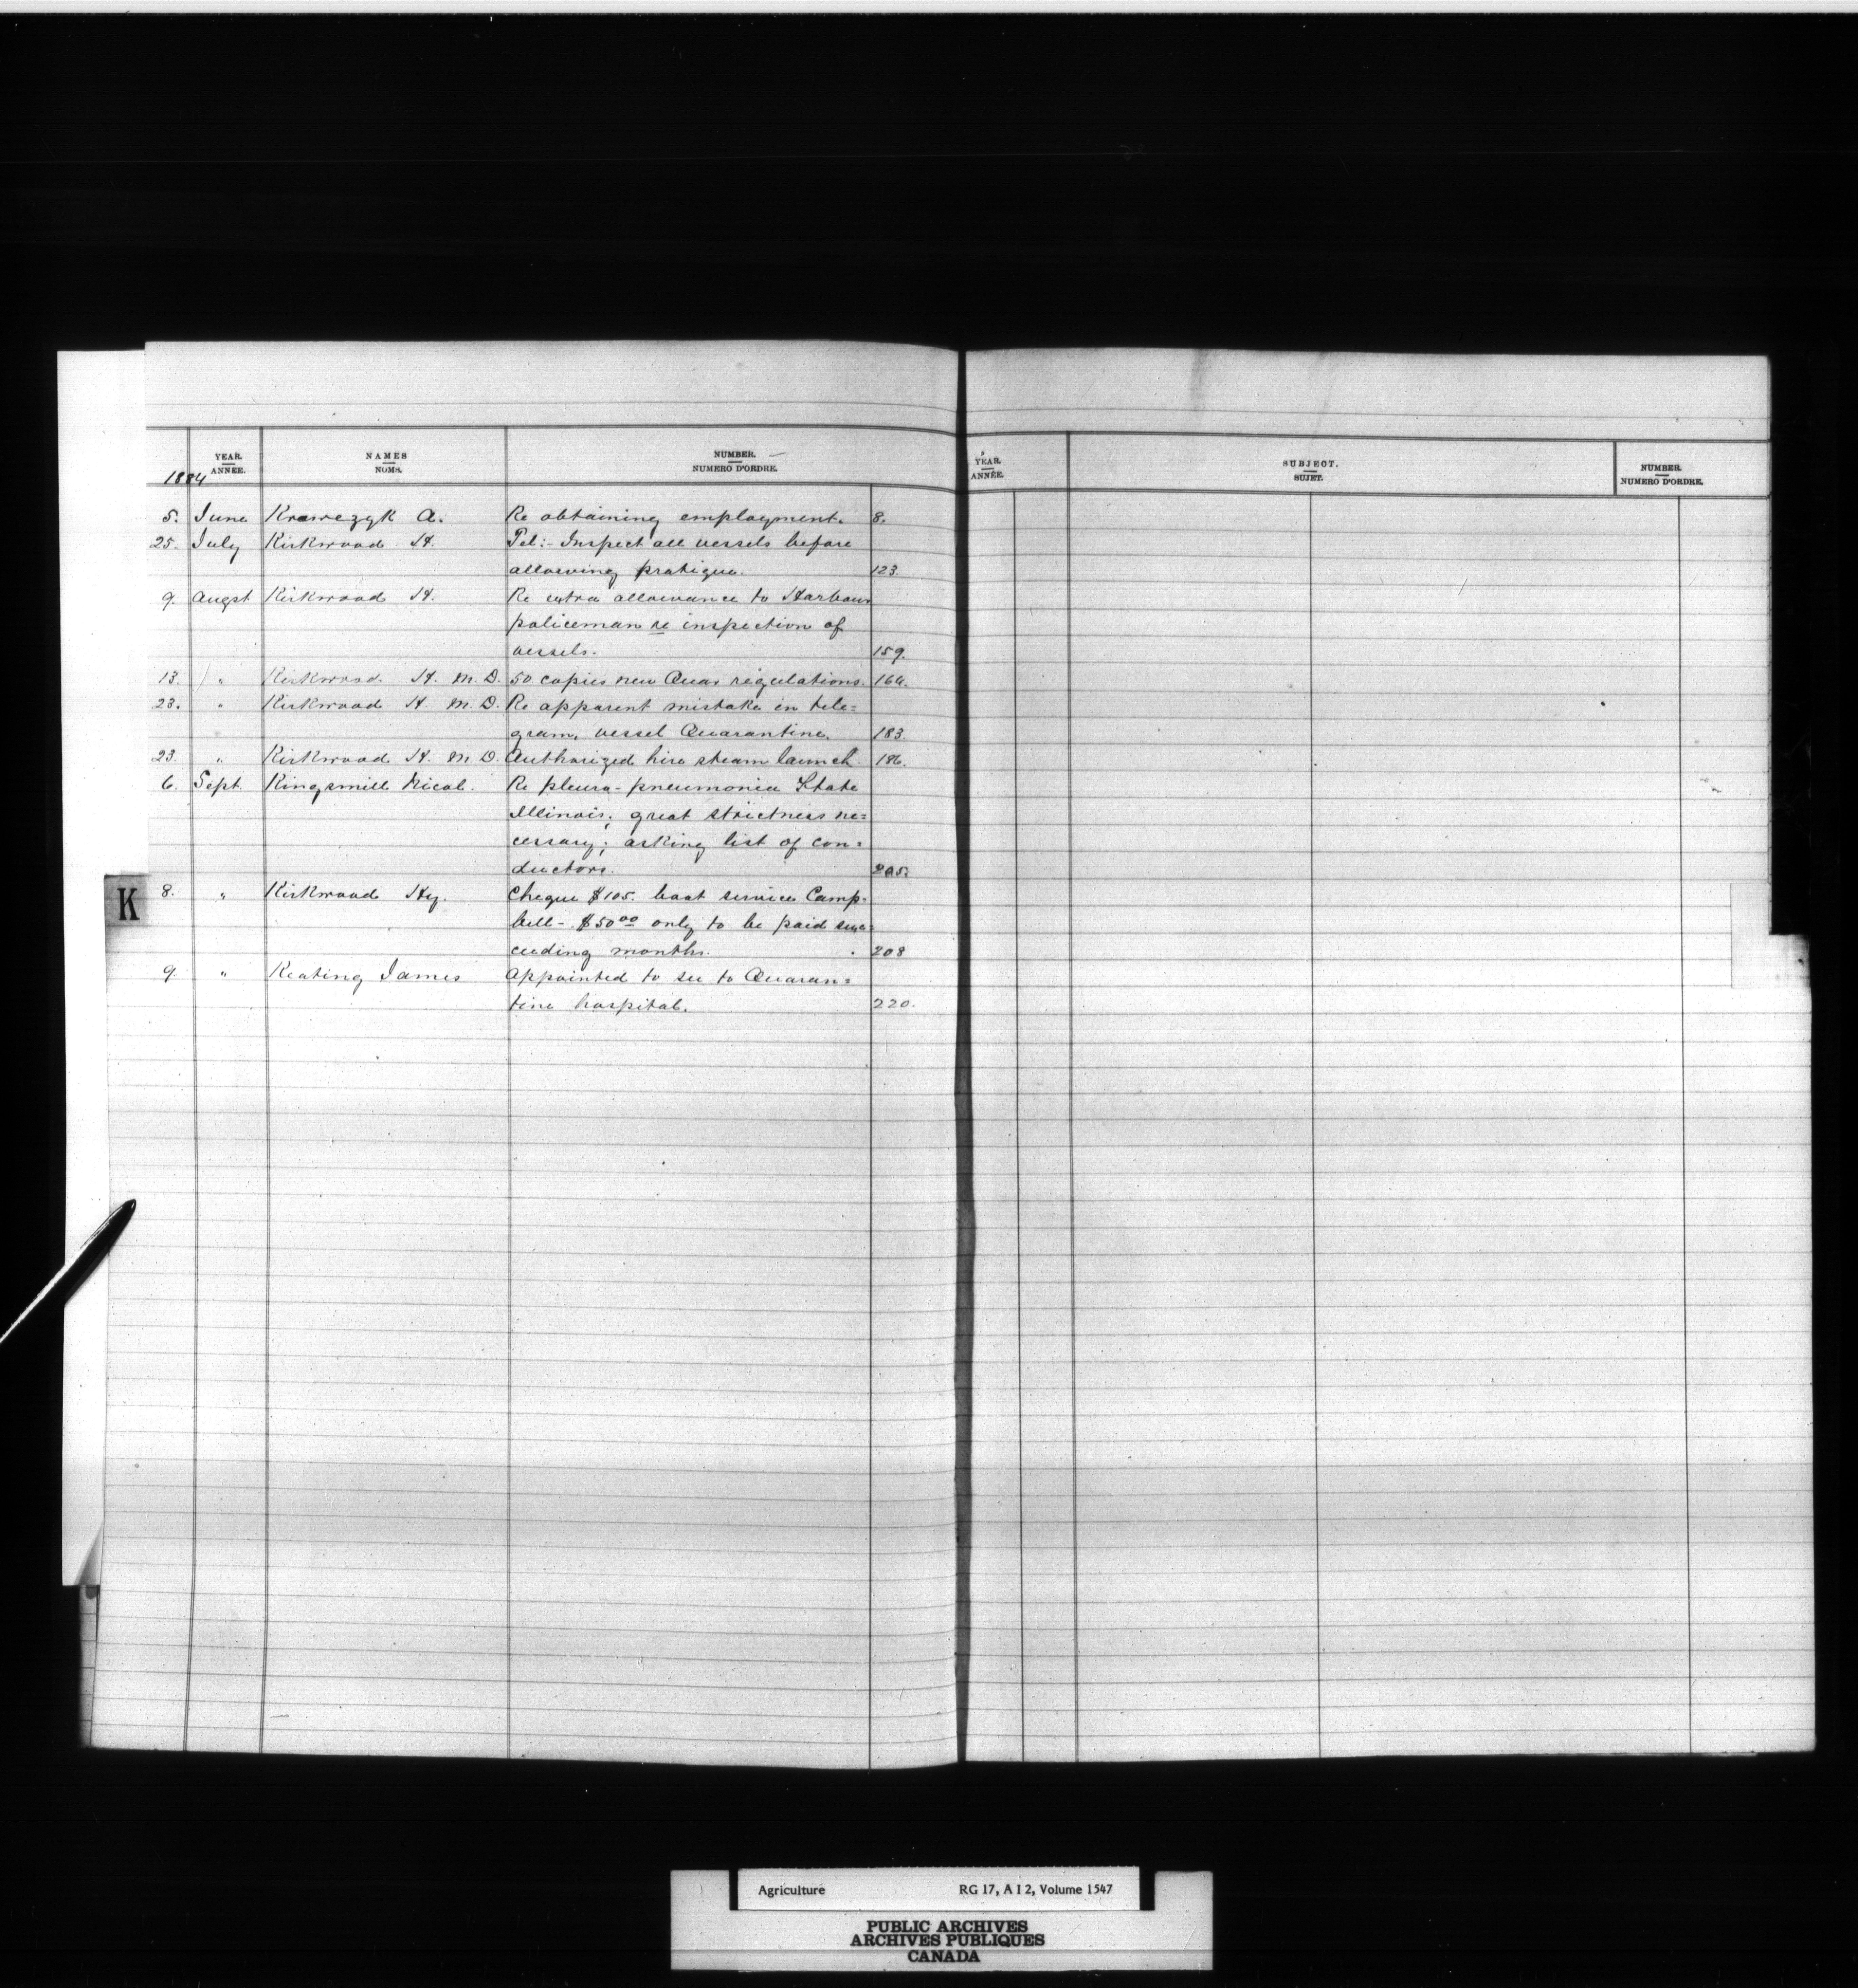 YEAR. NAMES NUMBER.
1884 ANNÉE. NOMS. NUMERO D'ORDRE.
5. June Krawczyk A. Re obtaining employment. 8.
25. July Kirkwood H. Tel:- Inspect all vessels before
allowing pratique. 123.
9. Augst Kirkwood H. Re extra allowance to Harbour
policeman re inspection of
vessels. 159.
13. " Kirkwood H. M. D. 50 copies new Quar regulations. 164.
23. " Kirkwood H. M. D. Re apparent mistake in tele=
gram, vessel Quarantine. 183.
23. " Kirkwood H. M. D. Authorized hire steam launch. 186.
6. Sept. Kingsmill Nicol. Re pleuro-pneumonia State
Illinois; great strictness ne=
cessary; asking list of con=
ductors. 205.
K
8. " Kirkwood Hy. Cheque $105. boat service Camp=
bell - $50 00 only to be paid suc=
ceeding months. 208
9. " Keating James Appointed to see to Quaran=
tine hospital. 220.
YEAR. SUBJECT. NUMBER.
ANNÉE. SUJET. NUMERO D'ORDRE.
Agriculture RG 17, A I 2, Volume 1547
PUBLIC ARCHIVES
ARCHIVES PUBLIQUES
CANADA